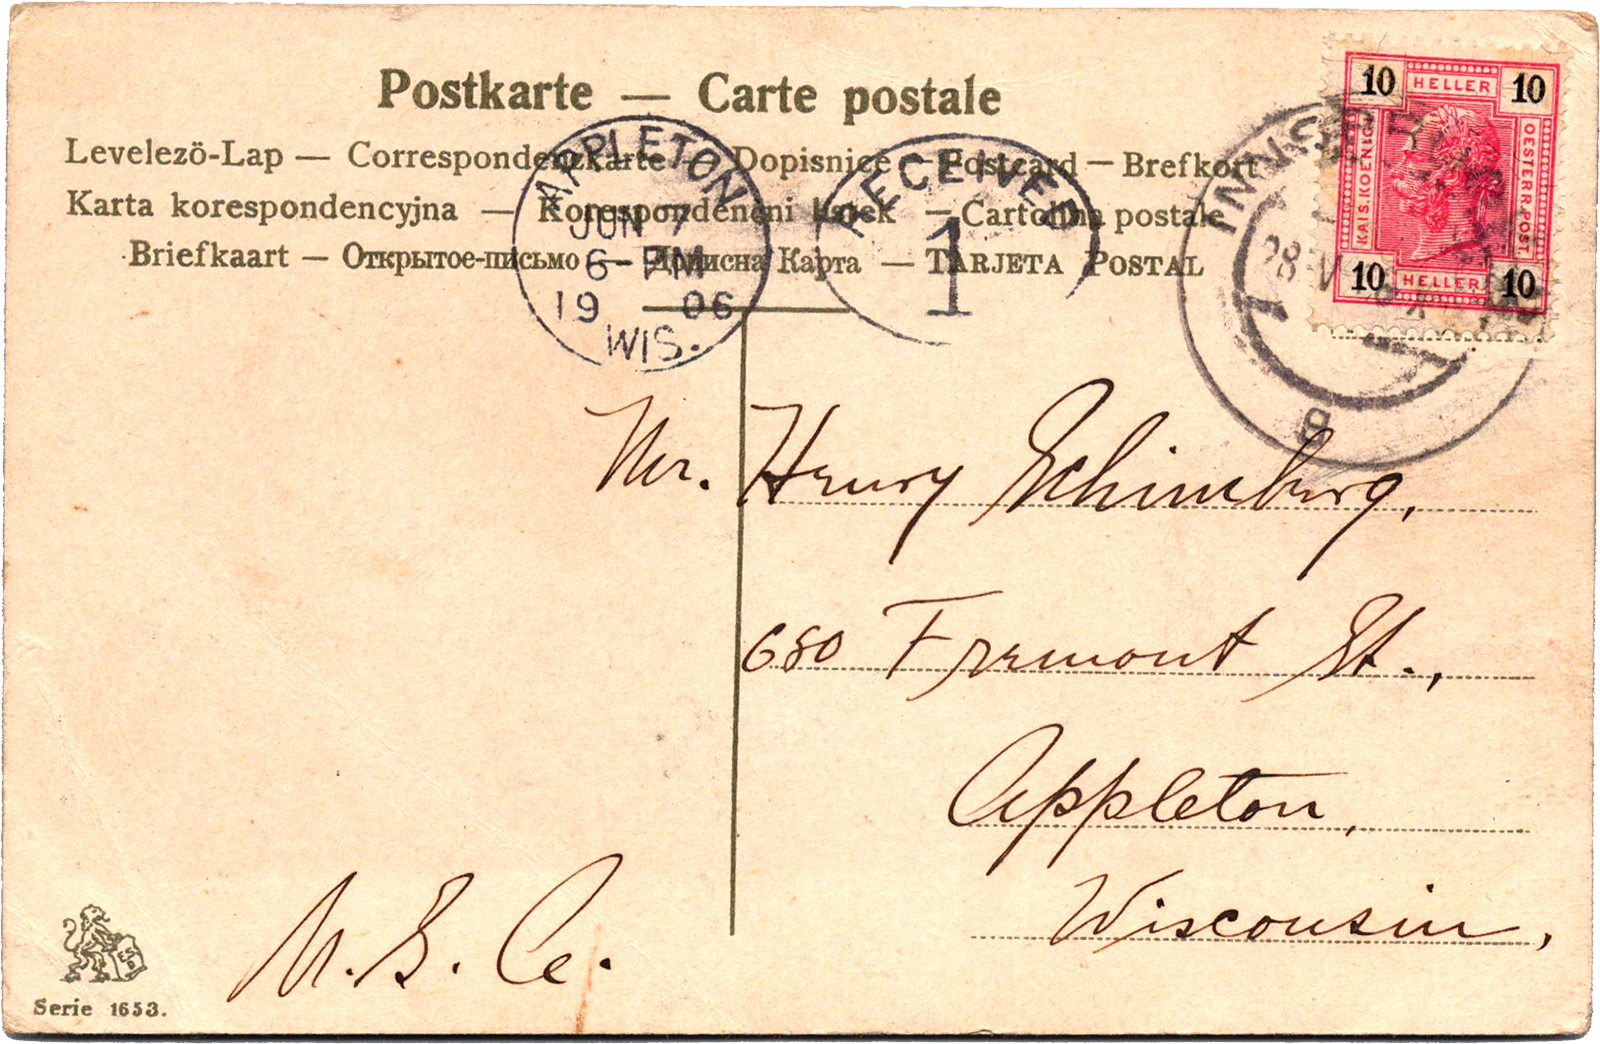 Postkarte — Carte postale
Levelezö-Lap — Correspondenzkarte — Dopisnice — Postcard — Brefkort
Karta korespondencyjna — Korespondencni listek — Cartolina postale
Briefkaart — Открытое-письмо — Дописна Карта — TARJETA POSTAL
APPLETON
JUN 7
6-PM
19 06
WIS.
RECEIVED
1
INNSBRUCK
28 V
8
10 HELLER 10
KAIS. KOENIGL. OESTERR. POST.
10 HELLER 10
Mr. Henry Schimberg,
680 Fremont St.,
Appleton,
Wisconsin,
U.S. Ce.
Serie 1653.